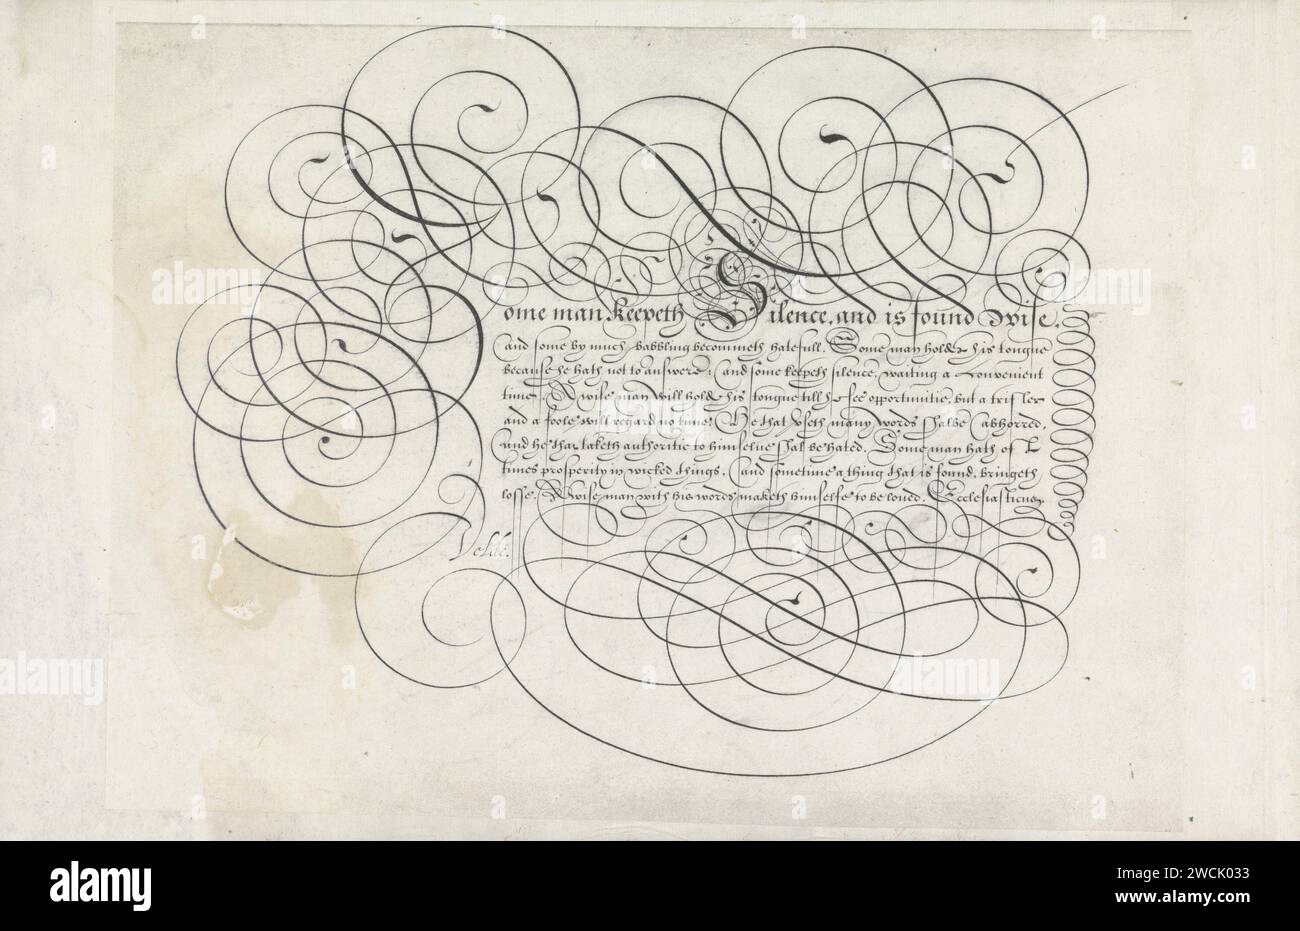 Some man keepeth Silence, and is found wise,
and some by much babbling becommeth hatefull. Some man holdeth his tongue
because he hath not to answere: and some keepeth silence, waiting a convenient
time. A wise man will hold his tongue till he see opportunitie, but a trifler
and a foole will regard no time. He that useth many words shalbe abhorred,
and he that taketh authoritie to himselue shal be hated. Some man hath of t
times prosperity in wicked things, and sometime a thing that is found, bringeth
losse. A wise man with his words maketh himselfe to be loued. Ecclesiasticus.
Velde.
alamy
Image ID: 2WCK033
www.alamy.com